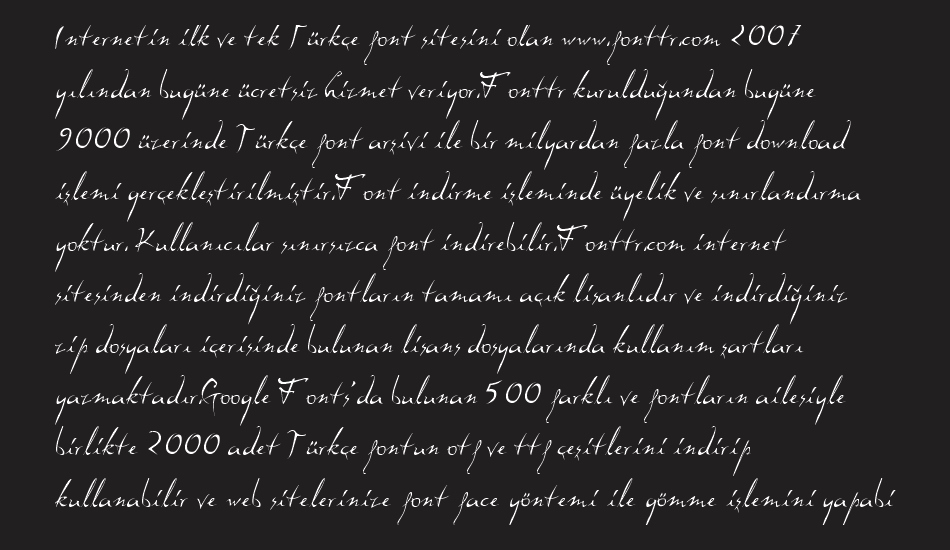 Internetin ilk ve tek Türkçe font sitesini olan www.fonttr.com 2007
yılından bugüne ücretsiz hizmet veriyor.Fonttr kurulduğundan bugüne
9000 üzerinde Türkçe font arşivi ile bir milyardan fazla font download
işlemi gerçekleştirilmiştir.Font indirme işleminde üyelik ve sınırlandırma
yoktur. Kullanıcılar sınırsızca font indirebilir.Fonttr.com internet
sitesinden indirdiğiniz fontların tamamı açık lisanlıdır ve indirdiğiniz
zip dosyaları içerisinde bulunan lisans dosyalarında kullanım şartları
yazmaktadır.Google Fonts'da bulunan 500 farklı ve fontların ailesiyle
birlikte 2000 adet Türkçe fontun otf ve ttf çeşitlerini indirip
kullanabilir ve web sitelerinize font face yöntemi ile gömme işlemini yapabi